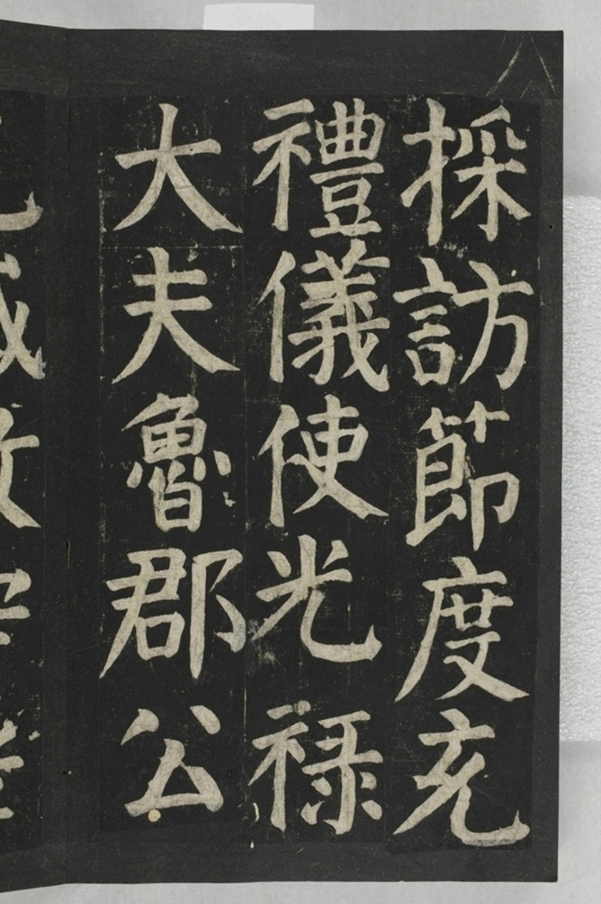 採訪節度充
禮儀使光禄
大夫魯郡公